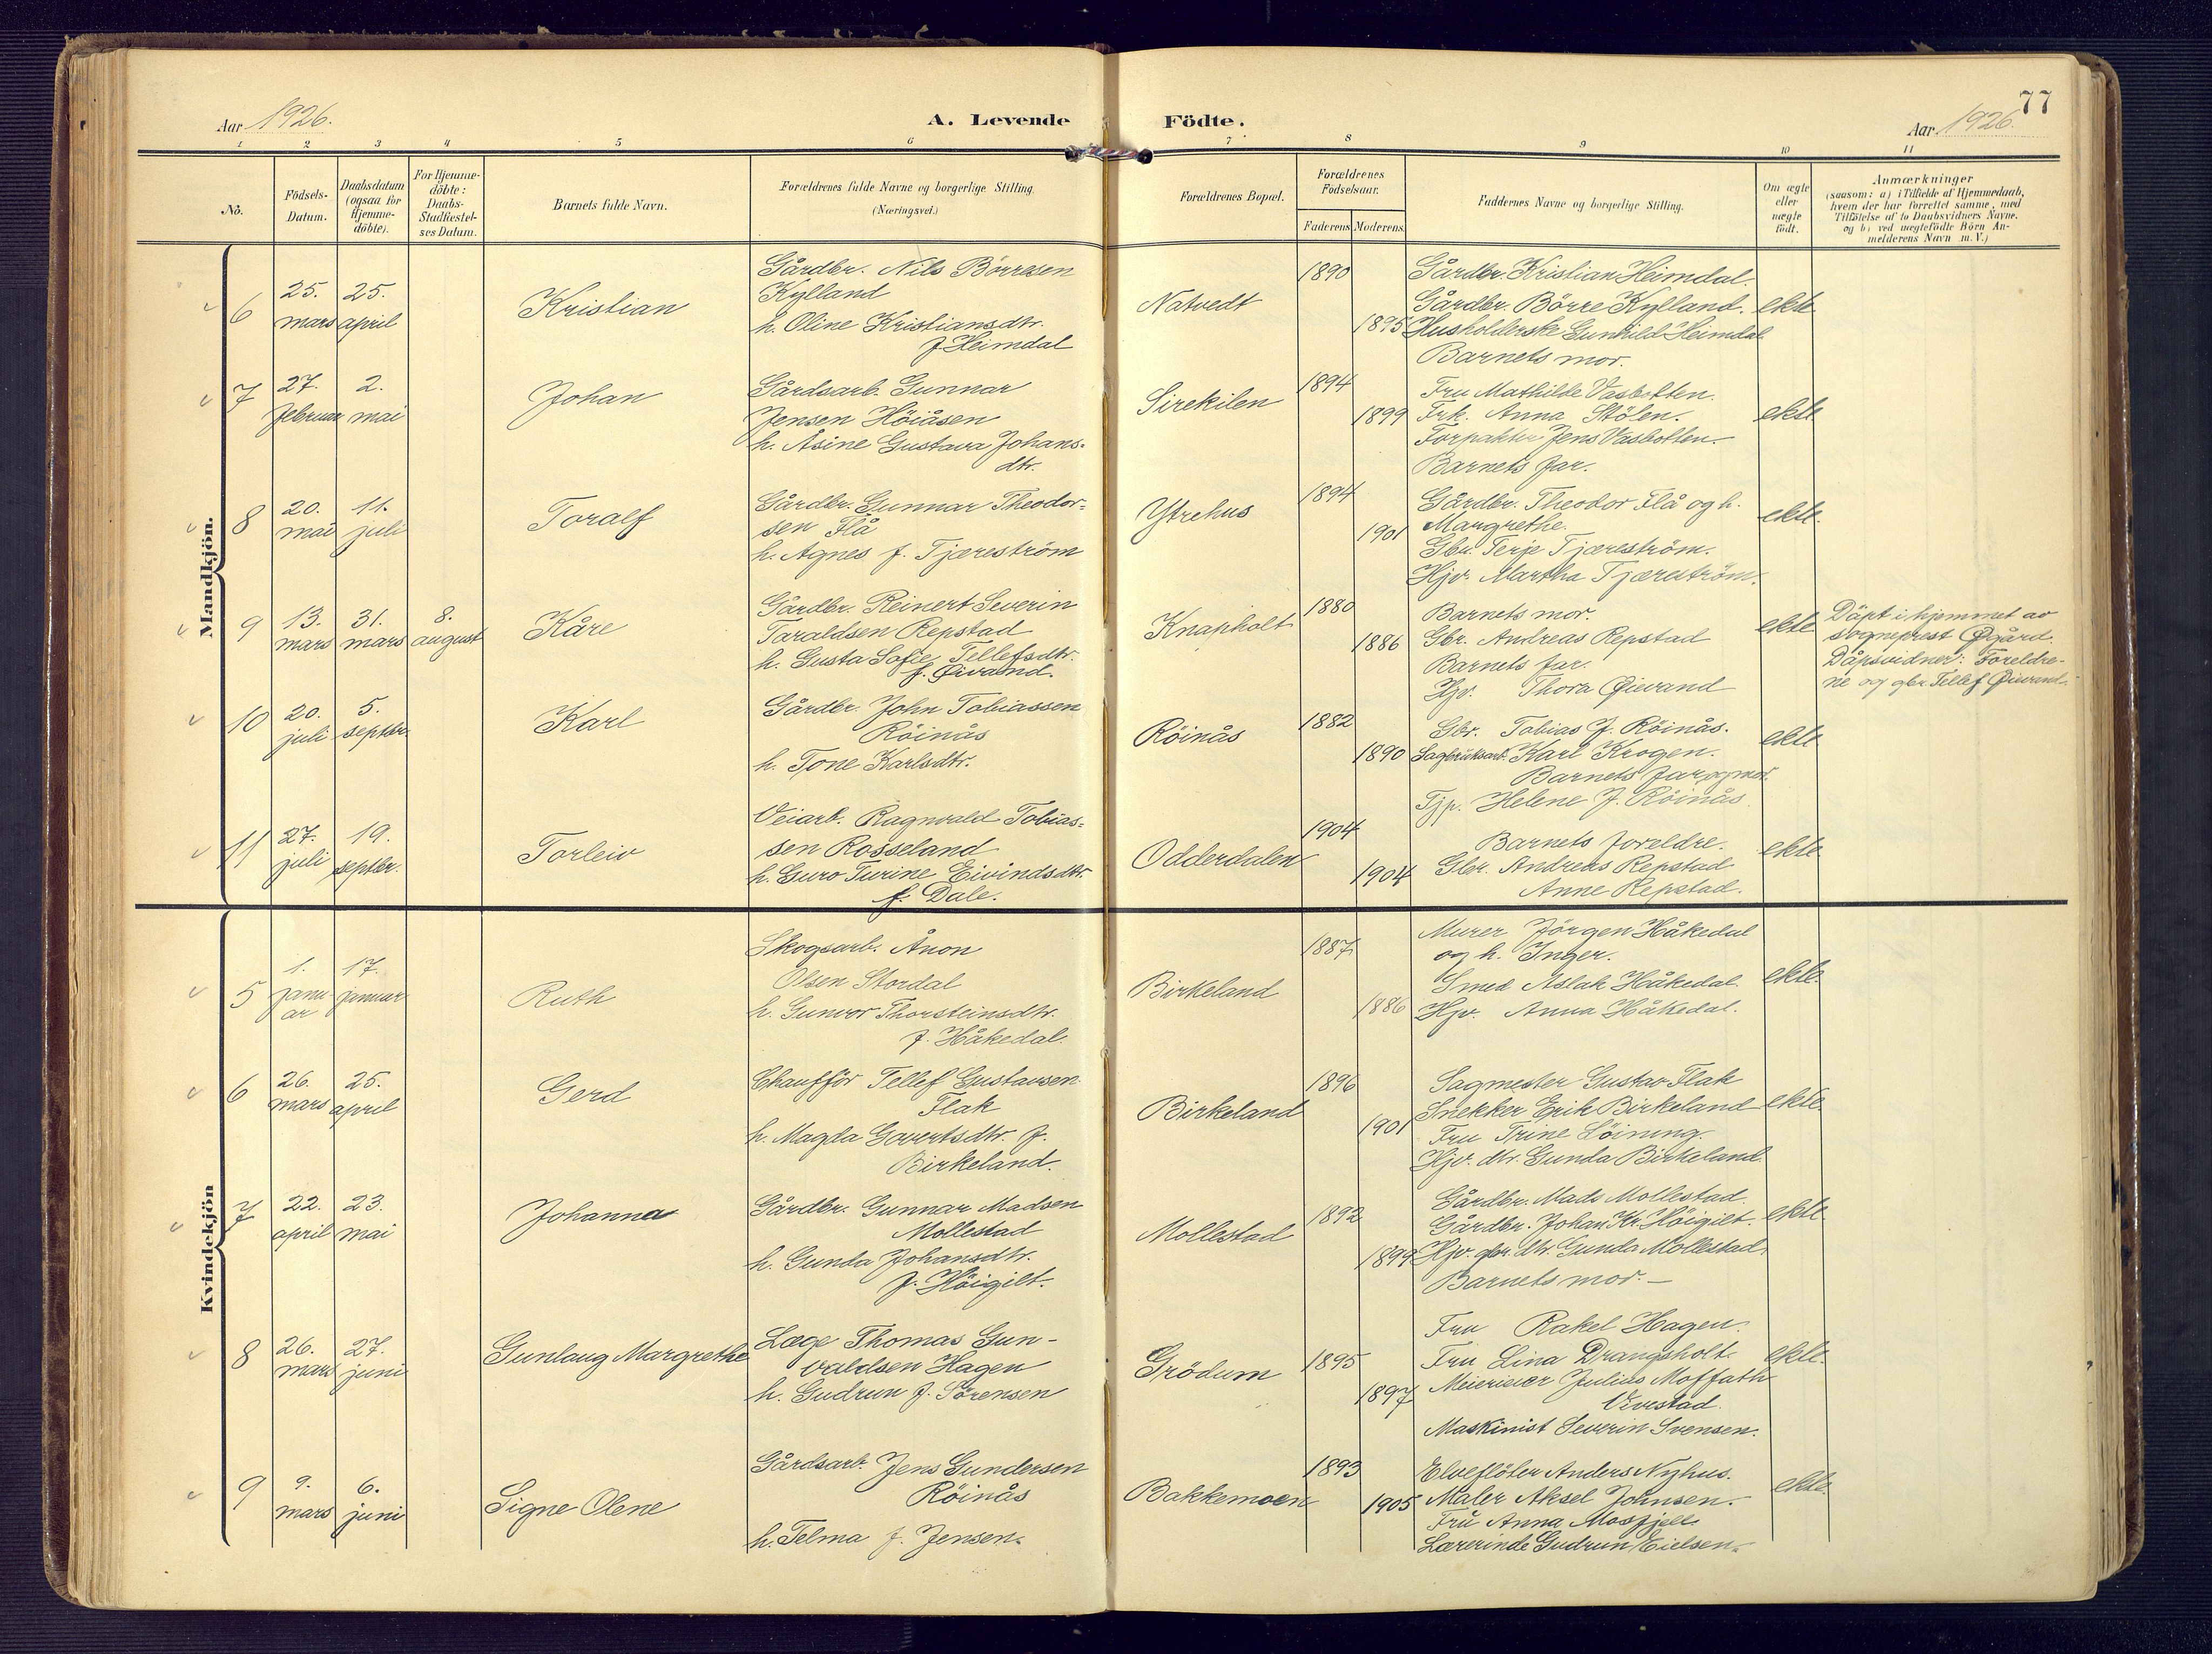 77
Aar 1926.
A. Levende
Födte.
Aar 1926.
1 2 3 4 5 6 7 8 9 10 11
No.
Födsels-
Datum.
Daabsdatum
(ogsaa for
Hjemme-
döbte).
For Hjemme-
döbte:
Daabs-
Stadfæstel-
ses Datum.
Barnets fulde Navn.
Forældrenes fulde Navne og borgerlige Stilling.
(Næringsvei.)
Forældrenes Bopæl.
Forældrenes
Födselsaar.
Faderens Moderens.
Faddernes Navne og borgerlige Stilling.
Om ægte
eller
uægte
født.
Anmærkninger
(saasom: a) i Tilfælde af Hjemmedaab,
hvem der har forrettet samme, med
Tilföielse af to Daabsvidners Navne,
og b) ved uægtefödte Börn An-
melderens Navn m. V.)
Mandkjön.
6
25.
mars
25.
april
Kristian
Gårdbr. Nils Börresen
Kylland
h. Oline Kristiansdtr.
f. Heimdal
Natvedt
1890
1895
Gårdbr. Kristian Heimdal.
Gårdbr. Börre Kylland.
Husholderske Gunhild Heimdal
Barnets mor.
ekte
7
27.
februar
2.
mai
Johan
Gårdsarb. Gunnar
Jensen Höiåsen
h. Åsine Gustava Johans-
dtr.
Sirekilen
1894
1899
Fru Mathilde Vasbotten.
Frk. Anna Stölen.
Forpakter Jens Vasbotten.
Barnets far.
ekte
8
20.
mai
11.
juli
Toralf
Gårdbr. Gunnar Theodor-
sen Flå
h. Agnes f. Tjæreström
Ytrehus
1894
1901
Gårdbr. Theodor Flå og h.
Margrethe.
Gbr. Terje Tjæreström.
Hjv. Martha Tjæreström.
ekte.
9
13.
mars
31.
mars
8.
august
Kåre
Gårdbr. Reinert Severin
Taraldsen Repstad
h. Gusta Sofie Tellefsdtr.
f. Øivand.
Knapholt
1880
1886
Barnets mor.
Gbr. Andreas Repstad
Barnets far.
Hjv. Thora Øivand
ekte
Döpt i hjemmet av
sogneprest Øgård.
Dåpsvidner: Foreldre-
ne og gbr. Tellef Øivand.
10
20.
juli
5.
septbr.
Karl
Gårdbr. John Tobiassen
Röinås
h. Tone Karlsdtr.
Röinås
1882
1890
Gbr. Tobias J. Röinås.
Sagbruksarb. Karl Krogen.
Barnets far og mor.
Tjp. Helene J. Röinås
ekte
11
27.
juli
19.
septbr.
Torleiv
Veiarb. Ragnvald Tobias-
sen Rosseland
h. Guro Turine Eivindsdtr.
f. Dale.
Odderdalen
1904
1904
Barnets foreldre.
Gbr. Andreas Repstad
Anne Repstad.
ekte
Kvindekjön
5
1.
janu
ar
17.
januar
Ruth
Skogsarb. Ånon
Olsen Stordal
h. Gunvor Thorsteinsdtr.
f. Håkedal.
Birkeland
1887
1886
Murer Jörgen Håkedal
og h. Inger.
Smed Aslak Håkedal.
Hjv. Anna Håkedal.
ekte.
6
26.
mars
25.
april
Gerd
Chaufför Tellef Gustavsen
Flak
h. Magda Govertsdtr. f.
Birkeland.
Birkeland
1896
1901
Sagmester Gustav Flak
Snekker Erik Birkeland
Fru Trine Löining.
Hjv. dtr. Gunda Birkeland
ekte.
7
22.
april
23.
mai
Johanna
Gårdbr. Gunnar Madsen
Mollestad
h. Gunda Johansdtr.
f. Höigilt.
Mollestad
1892
1899
Gårdbr. Mads Mollestad.
Gårdbr. Johan Kr. Höigilt.
Hjv. gbr. dtr. Gunda Mollestad.
Barnets mor. —
ekte
8
26.
mars
27.
juni
Gunlaug Margrethe
Læge Thomas Gun-
valdsen Hagen
h. Gudrun f. Sörensen
Grödum
1895
1897
Fru Rakel Hagen.
Fru Lina Drangsholt.
Meierieier Julius Moffath
Vevestad.
Maskinist Severin Svensen.
ekte.
9
9.
mars
6.
juni
Signe Olene
Gårdsarb. Jens Gundersen
Röinås
h. Telma f. Jensen.
Bakkemoen
1893
1905
Elveflöter Anders Nyhus.
Maler Aksel Johnsen.
Fru Anna Mosfjell
Lærerinde Gudrun Eielsen.
ekte.